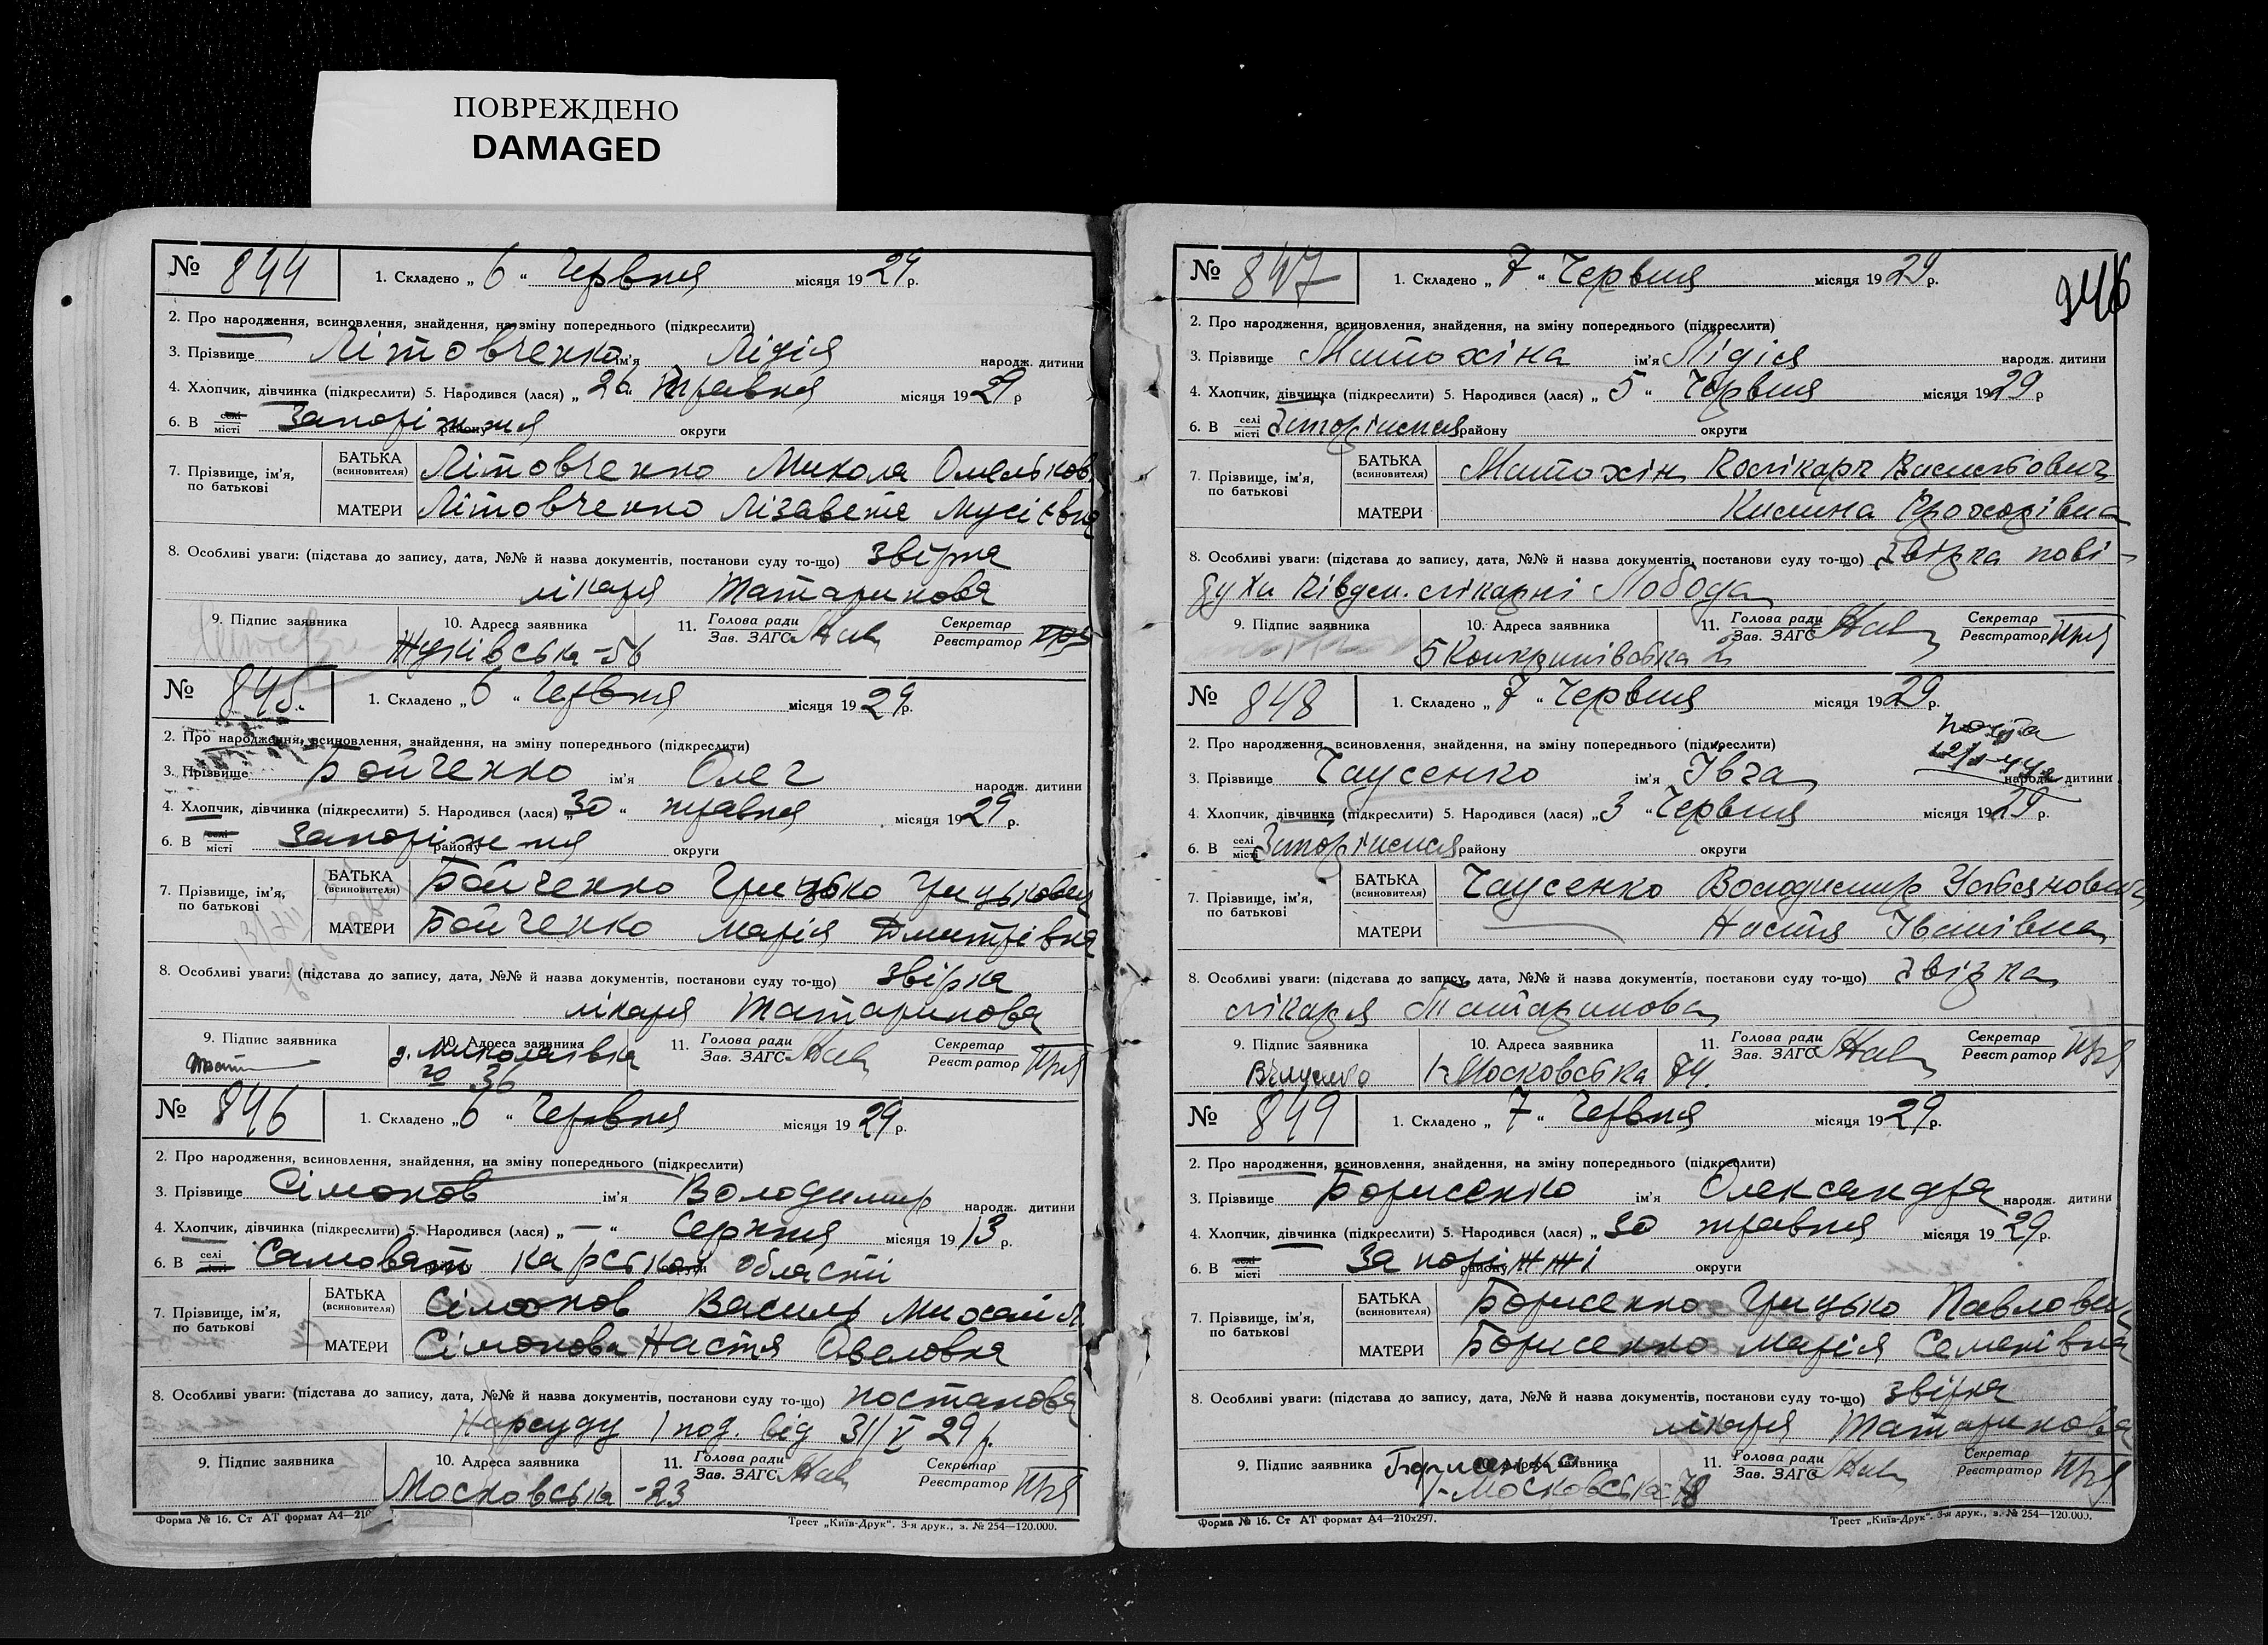 ПОВРЕЖДЕНО
DAMAGED
№ 844 1. Складено „ 6 “ Червня місяця 19 29 р.
2. Про народження, всиновлення, знайдення, на зміну попереднього (підкреслити)
3. Прізвище Літовченко ім'я Лідія народж. дитини
4. Хлопчик, дівчинка (підкреслити) 5. Народився (лася) „ 26 “ травня місяця 19 29 р
6. В селі місті Запоріжжя району округи
7. Прізвище, ім'я, по батькові
БАТЬКА (всиновителя) Літовченко Микола Омельков
МАТЕРИ Літовченко Лізавета Мусіївна
8. Особливі уваги: (підстава до запису, дата, №№ й назва документів, постанови суду то-що) звірка
лікаря Татаринова
9. Підпис заявника 10. Адреса заявника 11. Голова ради Зав. ЗАГС Секретар Реєстратор
Жуківська - 56
№ 845. 1. Складено „ 6 “ Червня місяця 19 29 р.
2. Про народження, всиновлення, знайдення, на зміну попереднього (підкреслити)
3. Прізвище Бойченко ім'я Олег народж. дитини
4. Хлопчик, дівчинка (підкреслити) 5. Народився (лася) „ 30 “ травня місяця 19 29 р.
6. В селі місті Запоріжжя району округи
7. Прізвище, ім'я, по батькові
БАТЬКА (всиновителя) Бойченко Грицько Грицькович
МАТЕРИ Бойченко Марія Дмитрівна
8. Особливі уваги: (підстава до запису, дата, №№ й назва документів, постанови суду то-що) звірка
лікаря Татаринова
9. Підпис заявника 10. Адреса заявника 11. Голова ради Зав. ЗАГС Секретар Реєстратор
д. Миколаївка
36
№ 846 1. Складено „ 6 “ Червня місяця 19 29 р.
2. Про народження, всиновлення, знайдення, на зміну попереднього (підкреслити)
3. Прізвище Сімонов ім'я Володимир народж. дитини
4. Хлопчик, дівчинка (підкреслити) 5. Народився (лася) „ — “ Серпня місяця 19 13 р.
6. В селі місті Самоват карської области
7. Прізвище, ім'я, по батькові
БАТЬКА (всиновителя) Сімонов Василь Михайл
МАТЕРИ Сімонова Настя Овеловна
8. Особливі уваги: (підстава до запису, дата, №№ й назва документів, постанови суду то-що) постанова
Нарсуду 1 под. від 31/V 29 р.
9. Підпис заявника 10. Адреса заявника 11. Голова ради Зав. ЗАГС Секретар Реєстратор
Московська - 23
Форма № 16. Ст АТ формат А4—210 Трест „Київ-Друк“. 3-я друк., з. № 254—120.000.
246
№ 847 1. Складено „ 7 “ Червня місяця 19 29 р.
2. Про народження, всиновлення, знайдення, на зміну попереднього (підкреслити)
3. Прізвище Матохіна ім'я Лідія народж. дитини
4. Хлопчик, дівчинка (підкреслити) 5. Народився (лася) „ 5 “ Червня місяця 19 29 р
6. В селі місті Запоріжжя району округи
7. Прізвище, ім'я, по батькові
БАТЬКА (всиновителя) Матохін Полікарп Васильович
МАТЕРИ Килина Прохорівна
8. Особливі уваги: (підстава до запису, дата, №№ й назва документів, постанови суду то-що) звірка пові-
духи Півден. лікарні Лобода
9. Підпис заявника 10. Адреса заявника 11. Голова ради Зав. ЗАГС Секретар Реєстратор
№ 848 1. Складено „ 7 “ Червня місяця 19 29 р.
2. Про народження, всиновлення, знайдення, на зміну попереднього (підкреслити)
3. Прізвище Чаусенко ім'я Івга народж. дитини
4. Хлопчик, дівчинка (підкреслити) 5. Народився (лася) „ 3 “ Червня місяця 19 29 р.
6. В селі місті Запоріжжя району округи
7. Прізвище, ім'я, по батькові
БАТЬКА (всиновителя) Чаусенко Володимир Устянович
МАТЕРИ — Настя Іванівна
8. Особливі уваги: (підстава до запису, дата, №№ й назва документів, постанови суду то-що) звірка
лікаря Татаринова
9. Підпис заявника 10. Адреса заявника 11. Голова ради Зав. ЗАГС Секретар Реєстратор
1-Московська 74.
№ 849 1. Складено „ 7 “ Червня місяця 19 29 р.
2. Про народження, всиновлення, знайдення, на зміну попереднього (підкреслити)
3. Прізвище Борисенко ім'я Олександра народж. дитини
4. Хлопчик, дівчинка (підкреслити) 5. Народився (лася) „ 30 травня місяця 19 29 р.
6. В селі місті Запоріжжі району округи
7. Прізвище, ім'я, по батькові
БАТЬКА (всиновителя) Борисенко Грицько Павлович
МАТЕРИ Борисенко Марія Семенівна
8. Особливі уваги: (підстава до запису, дата, №№ й назва документів, постанови суду то-що) звірка
лікаря Татаринова
9. Підпис заявника Борисенко 10. Адреса заявника 11. Голова ради Зав. ЗАГС Секретар Реєстратор
1-Московська - 78
Форма № 16. Ст АТ формат А4—210х297. Трест „Київ-Друк“. 3-я друк., з. № 254—120.000.